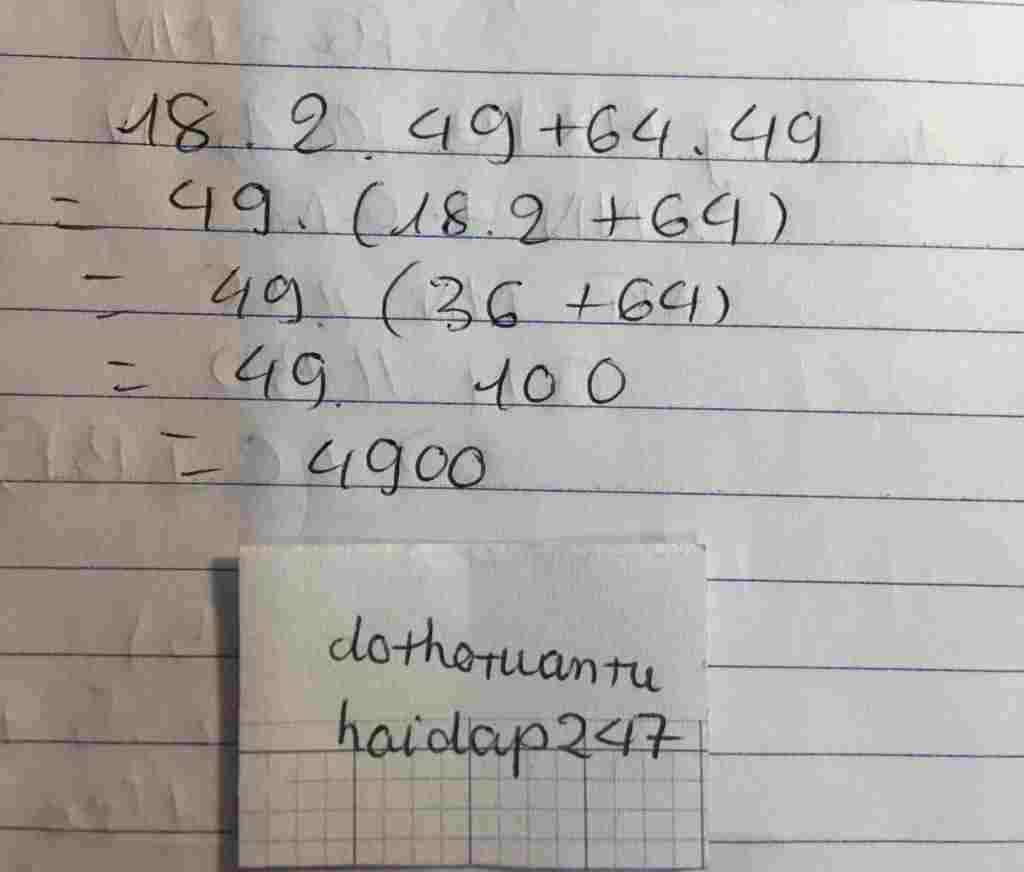 18 . 2 . 49 + 64 . 49
= 49 . (18 . 2 + 64)
= 49 . (36 + 64)
= 49 . 100
= 4900
dothotuantu
haidap247